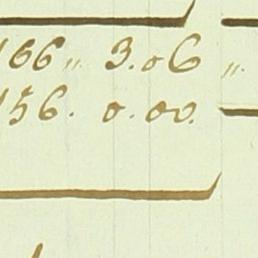 166 „ 3.06 „
156. 0.00.